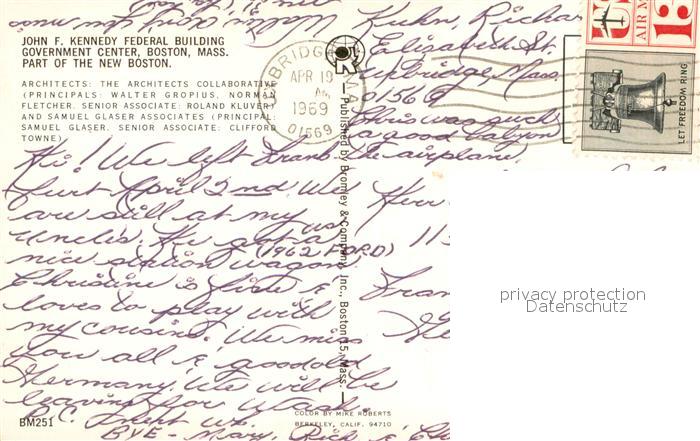 Kuhn, Richar
Elizabeth St.
Uxbridge, Mass.
01569
This was such
a good
the airplane,
JOHN F. KENNEDY FEDERAL BUILDING
GOVERNMENT CENTER, BOSTON, MASS.
PART OF THE NEW BOSTON.
ARCHITECTS: THE ARCHITECTS COLLABORATIVE
(PRINCIPALS: WALTER GROPIUS, NORMAN
FLETCHER. SENIOR ASSOCIATE: ROLAND KLUVER)
AND SAMUEL GLASER ASSOCIATES (PRINCIPAL:
SAMUEL GLASER. SENIOR ASSOCIATE: CLIFFORD
TOWNE)
UXBRIDGE
APR 19
AM
1969
01569
MA
US
AIR M
13
LET FREEDOM RING
Hi! We left Frank-
furt April 2nd. We
are still at my
uncle's. He got us a
(1962 FORD)
nice station wagon.
Christine is fine &
loves to play with
my cousins. We miss
you all & good old
Germany. We will be
leaving for Wash.
D.C. next wk.
BYE - Mary, Rich &
Herr
113
Fran
Ge
Published by Bromley & Company, Inc., Boston 15, Mass.
privacy protection
Datenschutz
BM251
COLOR BY MIKE ROBERTS
BERKELEY, CALIF. 94710